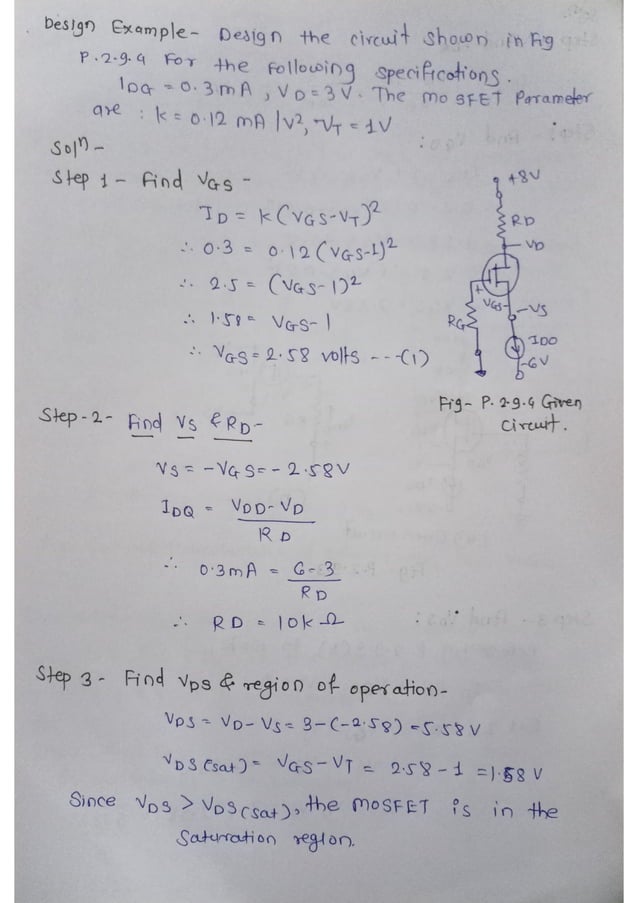 Design Example - Design the circuit shown in Fig
P.2.9.9 For the following specifications.
IDQ = 0.3mA, VD = 3V. The MOSFET Parameter
are : k = 0.12 mA/V², VT = 1V
Soln -
Step 1 - Find VGS -
ID = k(VGS-VT)²
∴ 0.3 = 0.12(VGS-1)²
∴ 2.5 = (VGS-1)²
∴ 1.58 = VGS-1
∴ VGS = 2.58 volts --- (1)
+8V
RD
VD
+
VGS-
VS
RG
IDO
-6V
Fig- P. 2.9.9 Given
Circuit.
Step-2- Find VS & RD-
VS = -VGS = -2.58V
IDQ = VDD-VD
RD
∴ 0.3mA = 6-3
RD
∴ RD = 10k Ω
Step 3 - Find VDS & region of operation-
VDS = VD-VS = 3-(-2.58) = 5.58V
VDS(sat) = VGS-VT = 2.58-1 = 1.58 V
Since VDS > VDS(sat), the MOSFET is in the
Saturration region.